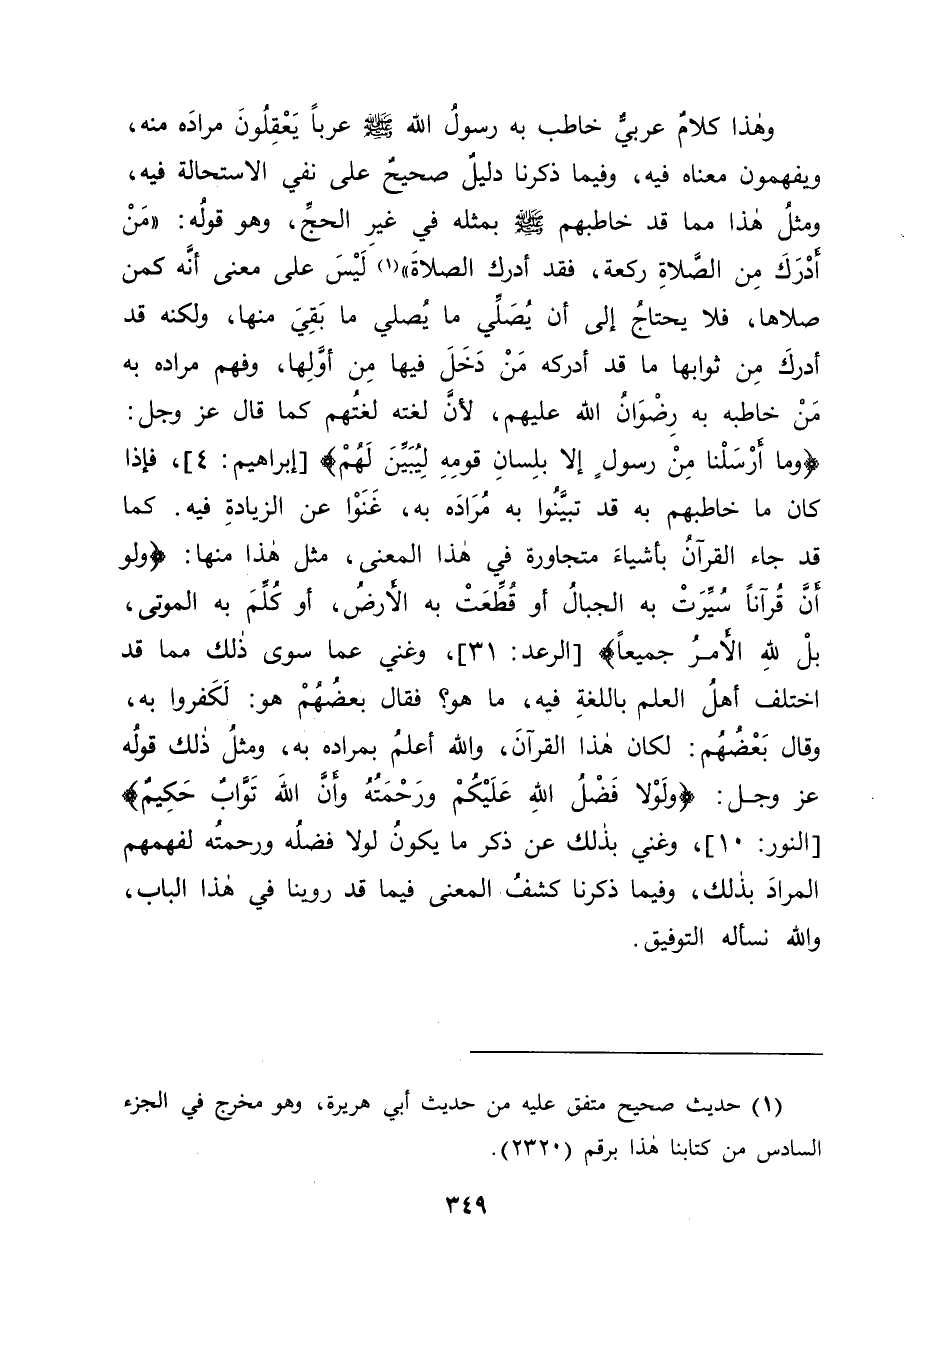 وهٰذا كلامٌ عربيٌّ خاطب به رسولُ الله ﷺ عرباً يَعْقِلُونَ مرادَه منه،
ويفهمون معناه فيه، وفيما ذكرنا دليلٌ صحيحٌ على نفي الاستحالة فيه،
ومثلُ هٰذا مما قد خاطبهم ﷺ بمثله في غيرِ الحجِّ، وهو قولُه: «مَنْ
أَدْرَكَ مِن الصَّلاةِ ركعة، فقد أدرك الصلاةَ»(١) لَيْسَ على معنى أنَّه كمن
صلاها، فلا يحتاجُ إلى أن يُصَلِّي ما يُصلي ما بَقِيَ منها، ولكنه قد
أدركَ مِن ثوابها ما قد أدركه مَنْ دَخَلَ فيها مِن أوَّلِها، وفهم مراده به
مَنْ خاطبه به رِضْوَانُ الله عليهم، لأنَّ لغته لغتُهم كما قال عز وجل:
﴿وما أَرْسَلْنا مِنْ رسولٍ إلا بلِسانِ قومِهِ لِيُبَيِّنَ لَهُمْ﴾ [إبراهيم: ٤]، فإذا
كان ما خاطبهم به قد تبيَّنُوا به مُرَادَه به، غَنَوْا عن الزيادةِ فيه. كما
قد جاء القرآنُ بأشياءَ متجاورة في هٰذا المعنى، مثل هٰذا منها: ﴿ولو
أنَّ قُرآناً سُيِّرَتْ به الجبالُ أو قُطِّعَتْ به الأَرضُ، أو كُلِّمَ به الموتى،
بلْ للهِ الأَمرُ جميعاً﴾ [الرعد: ٣١]، وغني عما سوى ذٰلك مما قد
اختلف أهلُ العلم باللغةِ فيه، ما هو؟ فقال بعضُهُمْ هو: لَكَفروا به،
وقال بَعْضُهُم: لكان هٰذا القرآنَ، والله أعلمُ بمراده به، ومثلُ ذٰلك قولُه
عز وجل: ﴿ولَوْلا فَضْلُ اللهِ عَلَيْكُمْ ورَحْمَتُهُ وأَنَّ اللهَ تَوَّابٌ حَكِيمٌ﴾
[النور: ١٠]، وغني بذٰلك عن ذكر ما يكونُ لولا فضلُه ورحمتُه لفهمهم
المرادَ بذٰلك، وفيما ذكرنا كشفُ المعنى فيما قد روينا في هٰذا الباب،
والله نسأله التوفيق.
(١) حديث صحيح متفق عليه من حديث أبي هريرة، وهو مخرج في الجزء
السادس من كتابنا هٰذا برقم (٢٣٢٠).
٣٤٩